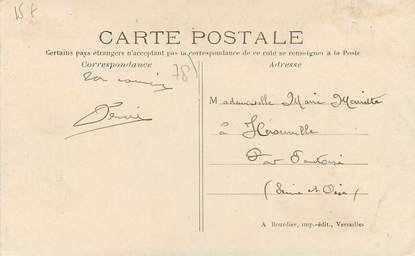 15 €
CARTE POSTALE
Certains pays étrangers n'acceptant pas la correspondance de ce coté se renseigner à la Poste
Correspondance
Adresse
78
Mademoiselle Marie Mariette
à Hérouville
Par Pontoise
(Seine et Oise)
A. Bourdier, imp.-édit., Versailles